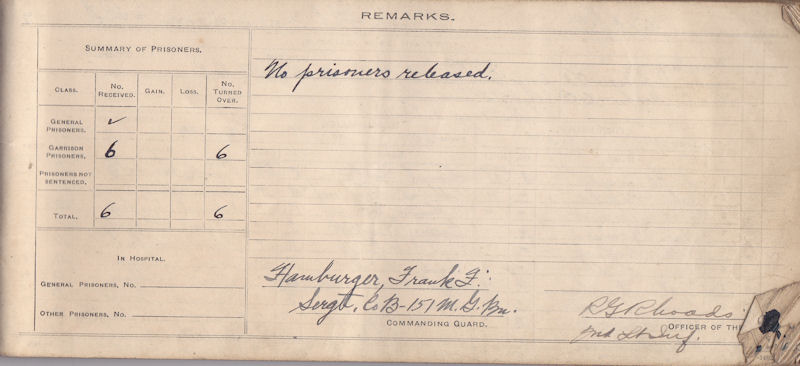 REMARKS.
SUMMARY OF PRISONERS.
CLASS. No. RECEIVED. GAIN. LOSS. No. TURNED OVER.
GENERAL PRISONERS. ✓
GARRISON PRISONERS, 6 6
PRISONERS NOT SENTENCED,
TOTAL. 6 6
IN HOSPITAL.
GENERAL PRISONERS, No.
OTHER PRISONERS, No.
No prisoners released.
Hamburger, Frank F.
Sergt. Co B-151 M. G. Bn.
COMMANDING GUARD.
R G Rhoads
2nd Lt Inf.
OFFICER OF THE